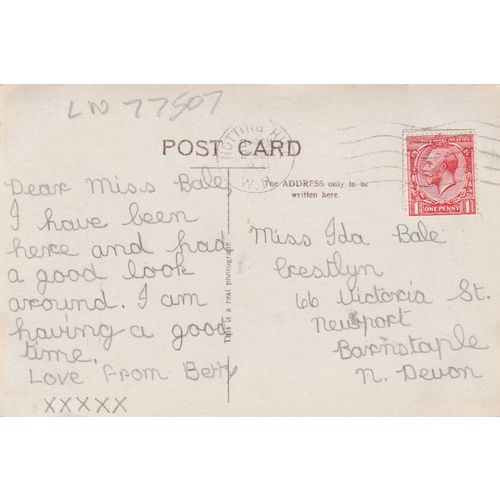 LN 77507
POST CARD
NOTTING HILL
W.
POSTAGE REVENUE
1 ONE PENNY 1
The ADDRESS only to be
written here.
This is a real photograph
Dear Miss Bale,
I have been
here and had
a good look
around. I am
having a good
time.
Love From Betty
XXXXX
Miss Ida Bale
Crestlyn
66 Victoria St.
Newport
Barnstaple
N. Devon